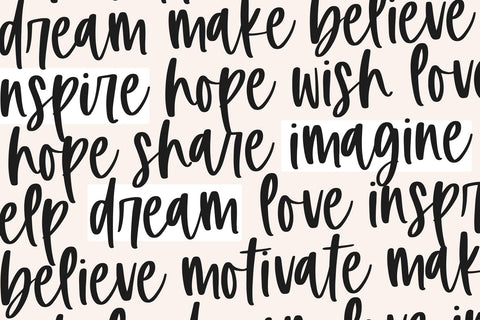 dream make believe
nspire hope wish lov
hope share imagine
elp dream love inspr
believe motivate mak